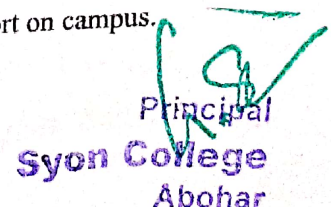 ort on campus.
Principal
Syon College
Abohar